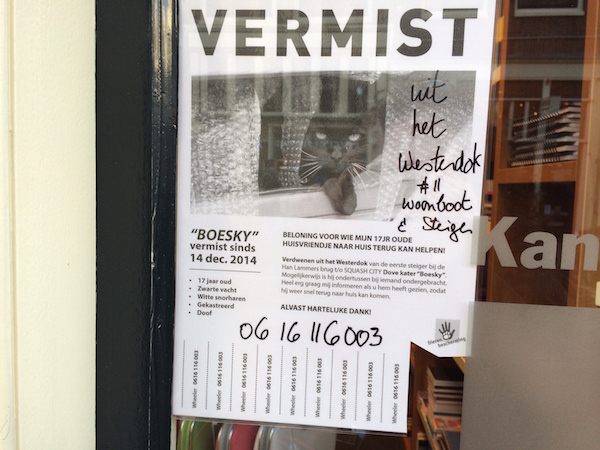 VERMIST
uit
het
Westerdok
#11
woonboot
& Steiger
"BOESKY"
vermist sinds
14 dec. 2014
• 17 jaar oud
• Zwarte vacht
• Witte snorharen
• Gekastreerd
• Doof
BELONING VOOR WIE MIJN 17JR OUDE
HUISVRIENDJE NAAR HUIS TERUG KAN HELPEN!
Verdwenen uit het Westerdok van de eerste steiger bij de
Han Lammers brug t/o SQUASH CITY Dove kater "Boesky".
Mogelijkerwijs is hij ondertussen bij iemand ondergebracht.
Heel erg graag mij informeren als u hem heeft gezien, zodat
hij weer snel terug naar huis kan komen.
ALVAST HARTELIJKE DANK!
06 16 116 003
dieren
bescherming
Wheeler 0616 116 003
Wheeler 0616 116 003
Wheeler 0616 116 003
Wheeler 0616 116 003
Wheeler 0616 116 003
Wheeler 0616 116 003
Wheeler 0616 116 003
Wheeler 0616 116 003
Wheeler 0616 116 003
Kan